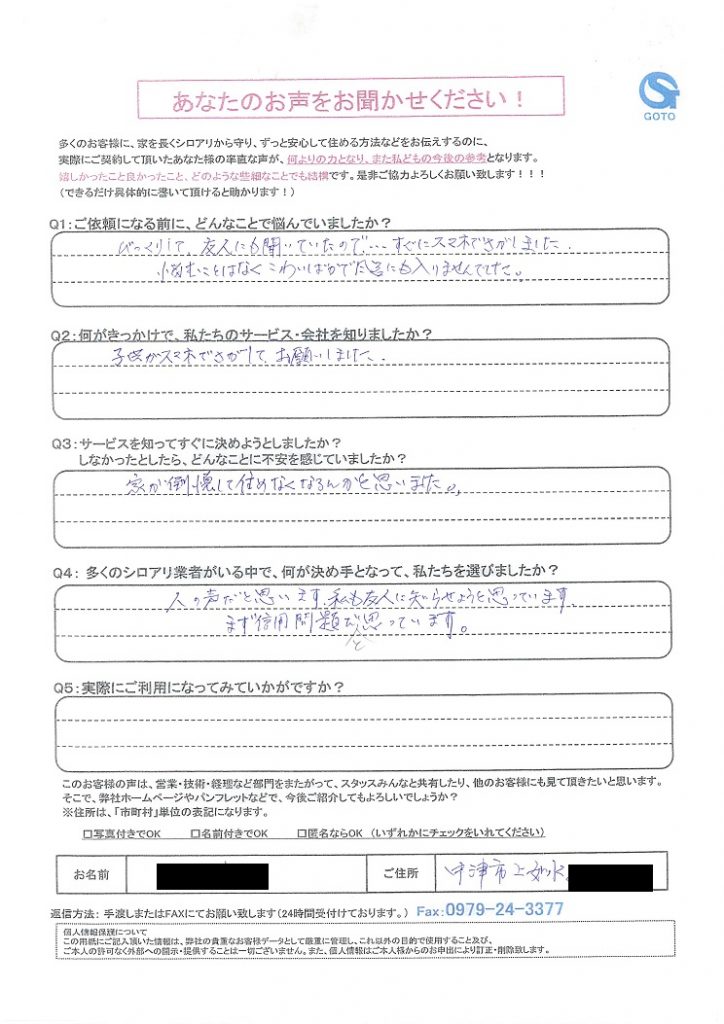 あなたのお声をお聞かせください！
GOTO
多くのお客様に、家を長くシロアリから守り、ずっと安心して住める方法などをお伝えするのに、
実際にご契約して頂いたあなた様の率直な声が、何よりの力となり、また私どもの今後の参考となります。
嬉しかったこと良かったこと、どのような些細なことでも結構です。是非ご協力よろしくお願い致します！！！
（できるだけ具体的に書いて頂けると助かります！）
Q1：ご依頼になる前に、どんなことで悩んでいましたか？
びっくりして、友人にも聞いていたので…すぐにスマホでさがしました.
悩むことはなくこわいばかりで風呂にも入りませんでした。
Q2：何がきっかけで、私たちのサービス・会社を知りましたか？
子供がスマホでさがして、お願いしました.
Q3：サービスを知ってすぐに決めようとしましたか？
しなかったとしたら、どんなことに不安を感じていましたか？
家が倒壊して住めなくなるんかと思いました。
Q4： 多くのシロアリ業者がいる中で、何が決め手となって、私たちを選びましたか？
人の声だと思います.私も友人に知らせようと思っています.
まず信用問題だと思っています。
Q5：実際にご利用になってみていかがですか？
このお客様の声は、営業・技術・経理など部門をまたがって、スタッスみんなと共有したり、他のお客様にも見て頂きたいと思います。
そこで、弊社ホームページやパンフレットなどで、今後ご紹介してもよろしいでしょうか？
※住所は、「市町村」単位の表記になります。
□写真付きでOK □名前付きでOK □匿名ならOK （いずれかにチェックをいれてください）
お名前 ご住所 中津市上如水
返信方法： 手渡しまたはFAXにてお願い致します（24時間受付ております。） Fax：0979-24-3377
個人情報保護について
この用紙にご記入頂いた情報は、弊社の貴重なお客様データとして厳重に管理し、これ以外の目的で使用すること及び、
ご本人の許可なく外部への開示・提供することは一切ございません。また、個人情報はご本人様からのお申出により訂正・削除致します。